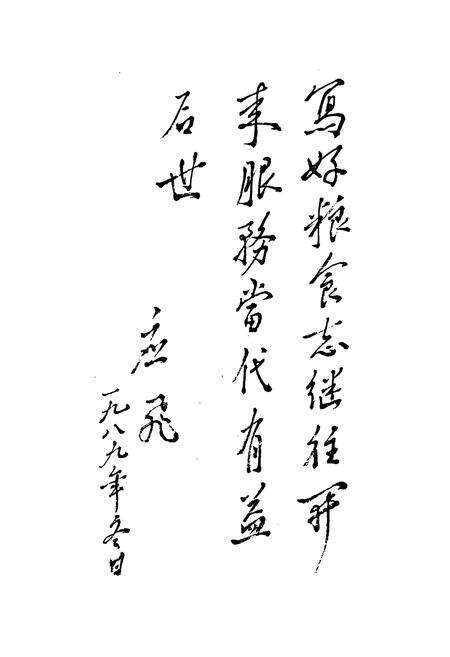 寫好粮食志继往开
来服務當代有益
后世
应飛
一九八九年冬日